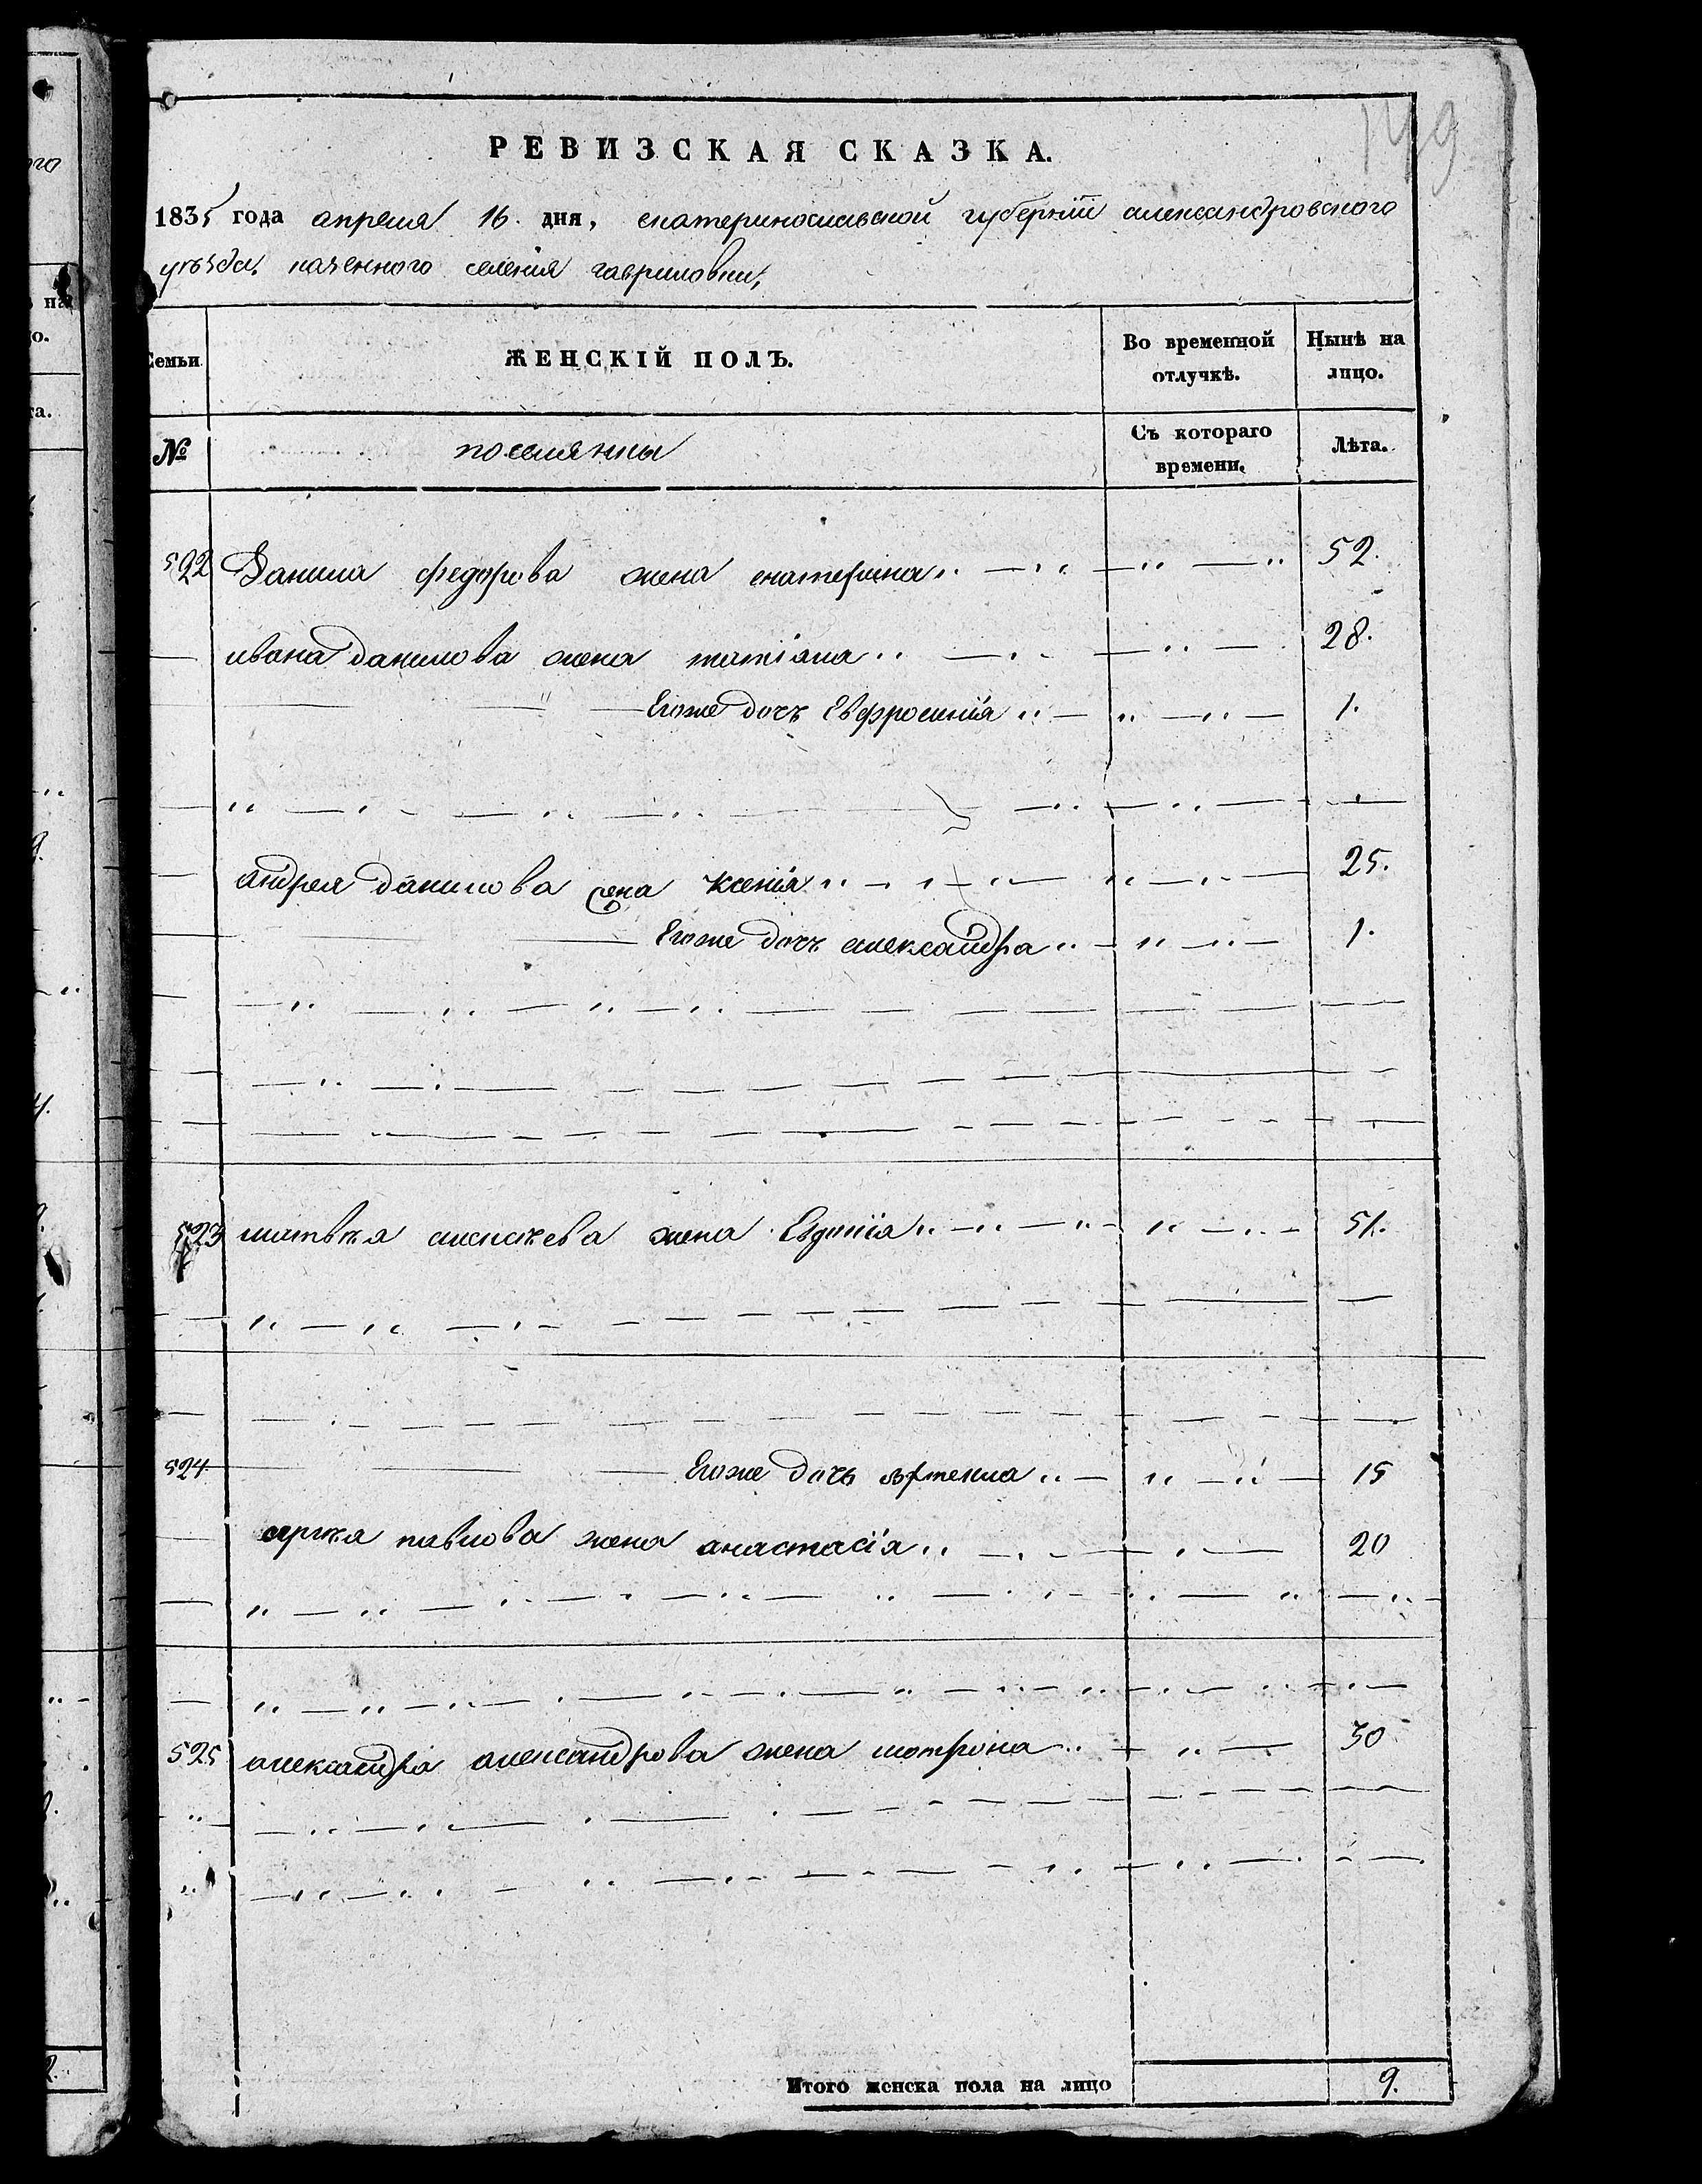 149
РЕВИЗСКАЯ СКАЗКА.
1835 года апреля 16. дня, екатеринославской губернїи александровского
уѣзда, казенного селенія гавриловки,
Семьи ЖЕНСКІЙ ПОЛЪ. Во временной отлучкѣ. Нынѣ на лицо.
№ поселянны Съ котораго времени. Лѣта.
522 Данила федорова жена екатерина 52.
ивана данилова жена татіана 28.
Егоже дочь Евфросинія 1.
андрея данилова жена ксенія 25.
Егоже дочь александра 1.
523 матвѣя алексѣева жена Евдокія 51.
524 Егоже дочь 15
сергѣя павлова жена анастасія 20
525 александра александрова жена матрона 30
Итого женска пола на лицо 9.